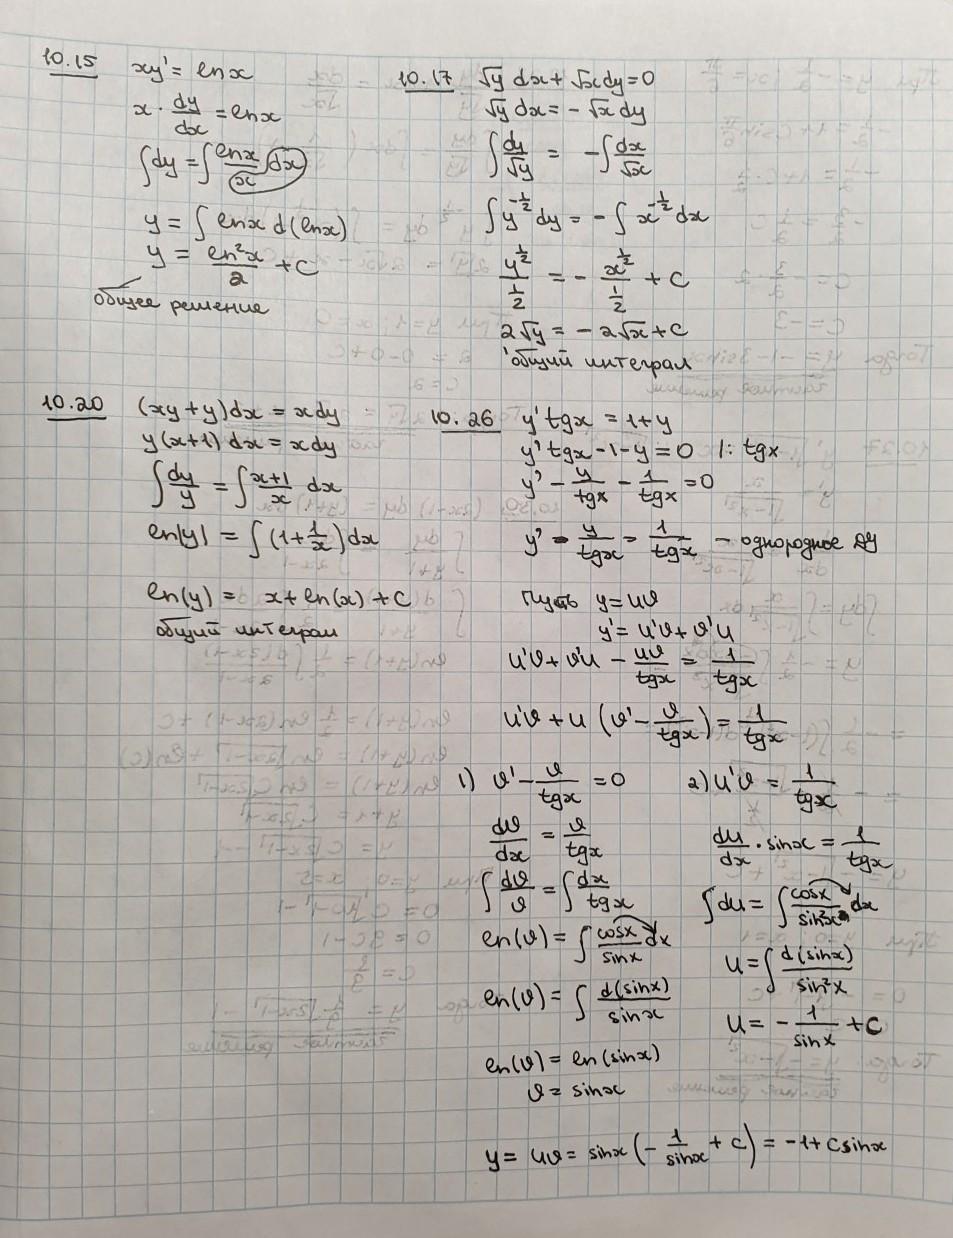 10.15 xy' = ln x
x · dy/dx = ln x
∫dy = ∫ ln x/x dx
y = ∫ ln x d(ln x)
y = ln²x/2 + C
общее решение
10.17 √y dx + √x dy = 0
√y dx = - √x dy
∫ dy/√y = - ∫ dx/√x
∫ y^(-1/2) dy = - ∫ x^(-1/2) dx
y^(1/2)/(1/2) = - x^(1/2)/(1/2) + C
2√y = - 2√x + C
общий интеграл
10.20 (xy + y)dx = x dy
y(x+1) dx = x dy
∫ dy/y = ∫ (x+1)/x dx
ln|y| = ∫ (1 + 1/x) dx
ln(y) = x + ln(x) + C
общий интеграл
10.26 y' tg x = 1 + y
y' tg x - 1 - y = 0 |: tg x
y' - y/tg x - 1/tg x = 0
y' - y/tg x = 1/tg x - однородное ДУ
Пусть y = uϑ
y' = u'ϑ + ϑ'u
u'ϑ + ϑ'u - uϑ/tg x = 1/tg x
u'ϑ + u (ϑ' - ϑ/tg x) = 1/tg x
1) ϑ' - ϑ/tg x = 0
dϑ/dx = ϑ/tg x
∫ dϑ/ϑ = ∫ dx/tg x
ln(ϑ) = ∫ cos x/sin x dx
ln(ϑ) = ∫ d(sin x)/sin x
ln(ϑ) = ln(sin x)
ϑ = sin x
2) u'ϑ = 1/tg x
du/dx · sin x = 1/tg x
∫ du = ∫ cos x/sin²x dx
u = ∫ d(sin x)/sin²x
u = - 1/sin x + C
y = uϑ = sin x (- 1/sin x + C) = -1 + C sin x